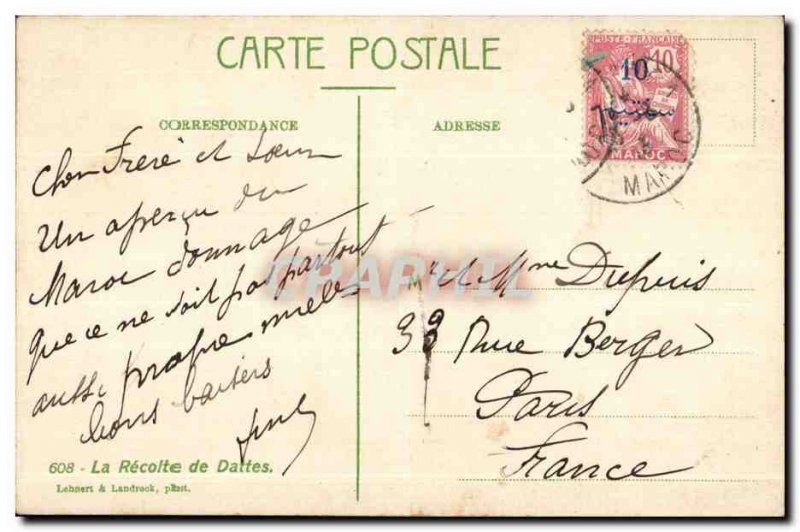 CARTE POSTALE
CORRESPONDANCE
ADRESSE
POSTE FRANÇAISE
10
10
MAROC
MAROC
Cher Frère et Soeur
Un aperçu du
Maroc dommage
que ce ne soit pas partout
aussi propre milles
bons baisers
CPAPHIL
M et Mme Dupuis
33 Rue Berger
Paris
France
608 - La Récolte de Dattes.
Lehnert & Landrock, phot.